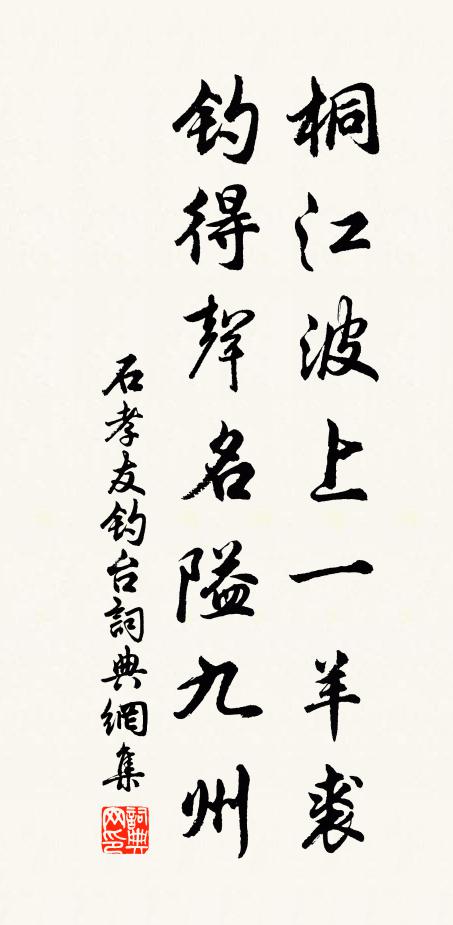 桐江波上一羊裘
钓得聲名隘九州
石孝友钓台詞典網集
詞典网印